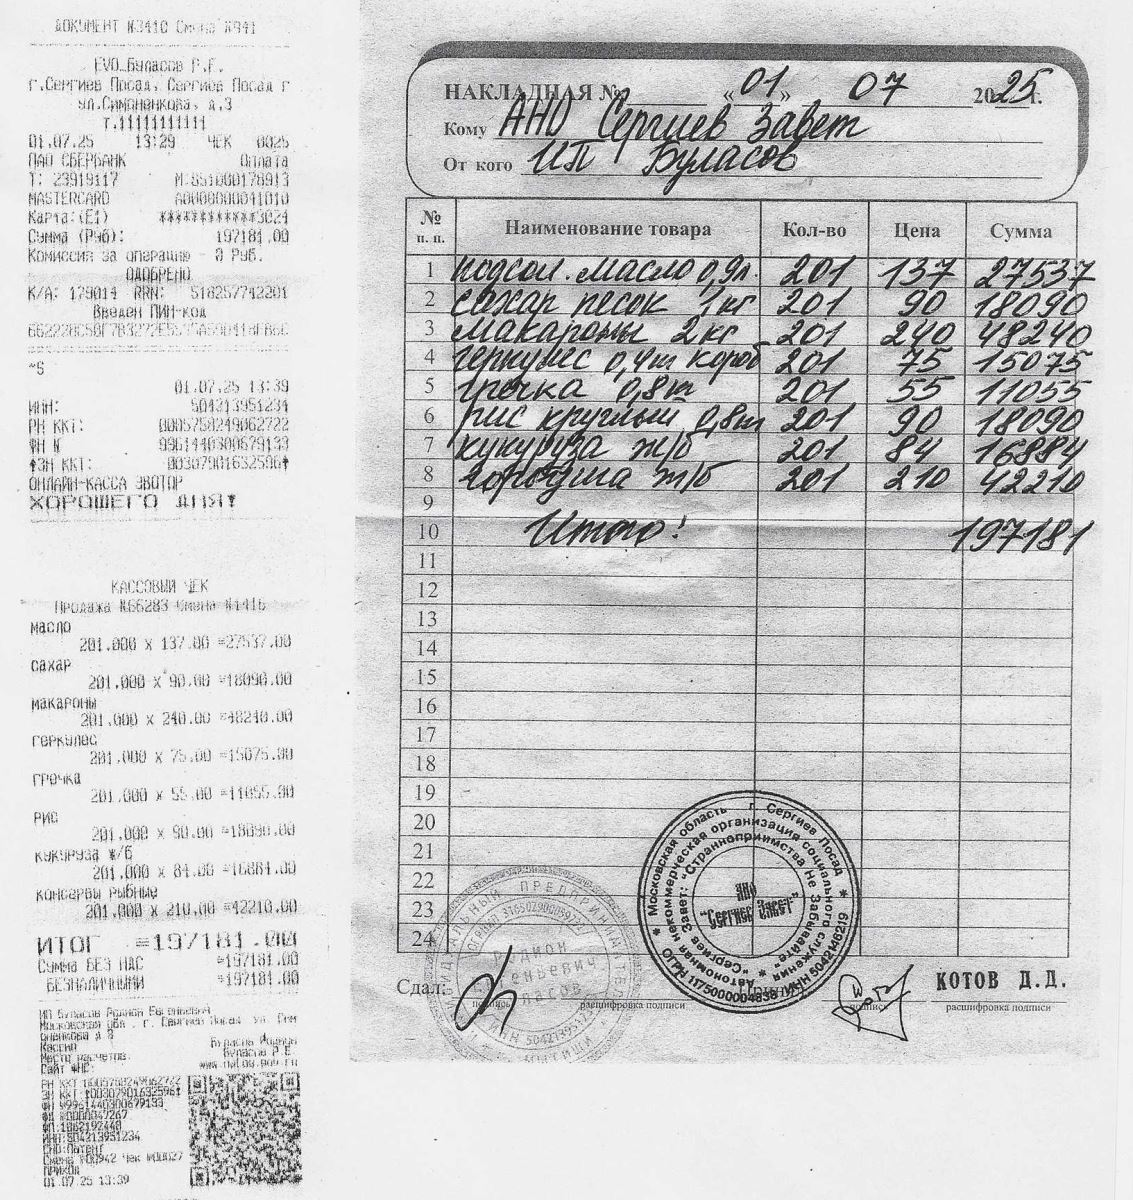 ДОКУМЕНТ №3410 Смена №941
EVO_Буласов Р.Е.
г.Сергиев Посад, Сергиев Посад г
ул.Симоненкова, д.3
т.11111111111
01.07.25 13:29 ЧЕК 0025
ПАО СБЕРБАНК Оплата
Т: 23919117 М:851000178913
MASTERCARD A0000000041010
Карта:(E1) ************3024
Сумма (Руб): 197181.00
Комиссия за операцию - 0 Руб.
ОДОБРЕНО
К/А: 179014 RRN: 518257742201
Введен ПИН-код
~S
01.07.25 13:39
ИНН: 504213951234
РН ККТ: 0005758249062722
ФН № 9961440300679133
↑ЗН ККТ: 00307901632596↑
ОНЛАЙН-КАССА ЭВОТОР
ХОРОШЕГО ДНЯ!
КАССОВЫЙ ЧЕК
Продажа №66283 Смена №1416
масло
201.000 x 137.00 =27537.00
сахар
201.000 x 90.00 =18090.00
макароны
201.000 x 240.00 =48240.00
геркулес
201.000 x 75.00 =15075.00
гречка
201.000 x 55.00 =11055.00
рис
201.000 x 90.00 =18090.00
кукуруза ж/б
201.000 x 84.00 =16884.00
консервы рыбные
201.000 x 210.00 =42210.00
ИТОГ =197181.00
Сумма БЕЗ НДС =197181.00
БЕЗНАЛИЧНЫМИ =197181.00
ИП Буласов Родион Евгеньевич
Московская обл., г. Сергиев Посад, ул. Сим
оненкова д 3
Кассир
Буласов Р.Е
Место расчетов
Сайт ФНС: www.nalog.gov.ru
РН ККТ:0005758249062722
ФН:9961440300679133
ФД:0000047267
ФП:1862192448
ИНН:504213951234
СНО:Патент
Смена №00942 Чек №00027
ПРИХОД
01.07.25 13:39
НАКЛАДНАЯ № «01» 07 2025 г.
Кому АНО Сергиев Завет
От кого ИП Буласов
№ п. п. Наименование товара Кол-во Цена Сумма
1 подсол. масло 0,9л. 201 137 27537
2 сахар песок 1кг 201 90 18090
3 макароны 2кг 201 240 48240
4 геркулес 0,4т короб 201 75 15075
5 гречка 0,8т 201 55 11055
6 рис круглый 0,8т 201 90 18090
7 кукуруза ж/б 201 84 16884
8 горбуша ж/б 201 210 42210
9
10 Итого! 197181
11
12
13
14
15
16
17
18
19
20
21
22
23
24
Сдал: подпись расшифровка подписи
подпись КОТОВ Д.Д. расшифровка подписи
ИНДИВИДУАЛЬНЫЙ ПРЕДПРИНИМАТЕЛЬ
Родион
Евгеньевич
Буласов
* Московская область г. Сергиев Посад *
ОГРН 1175000004838 * ИНН 5042146219
Автономная некоммерческая организация социального служения
"Сергиев Завет: "Странноприимства Не Забывайте" *
АНО
"Сергиев Завет"